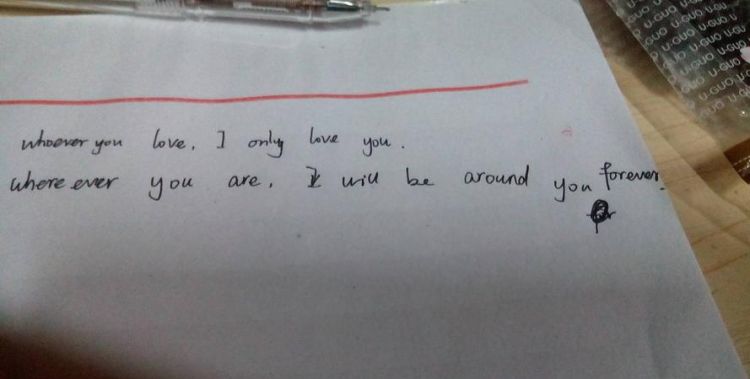 whoever you love. I only love you.
where ever you are. I will be around you forever.
U-GUO U-GUO U-GUO